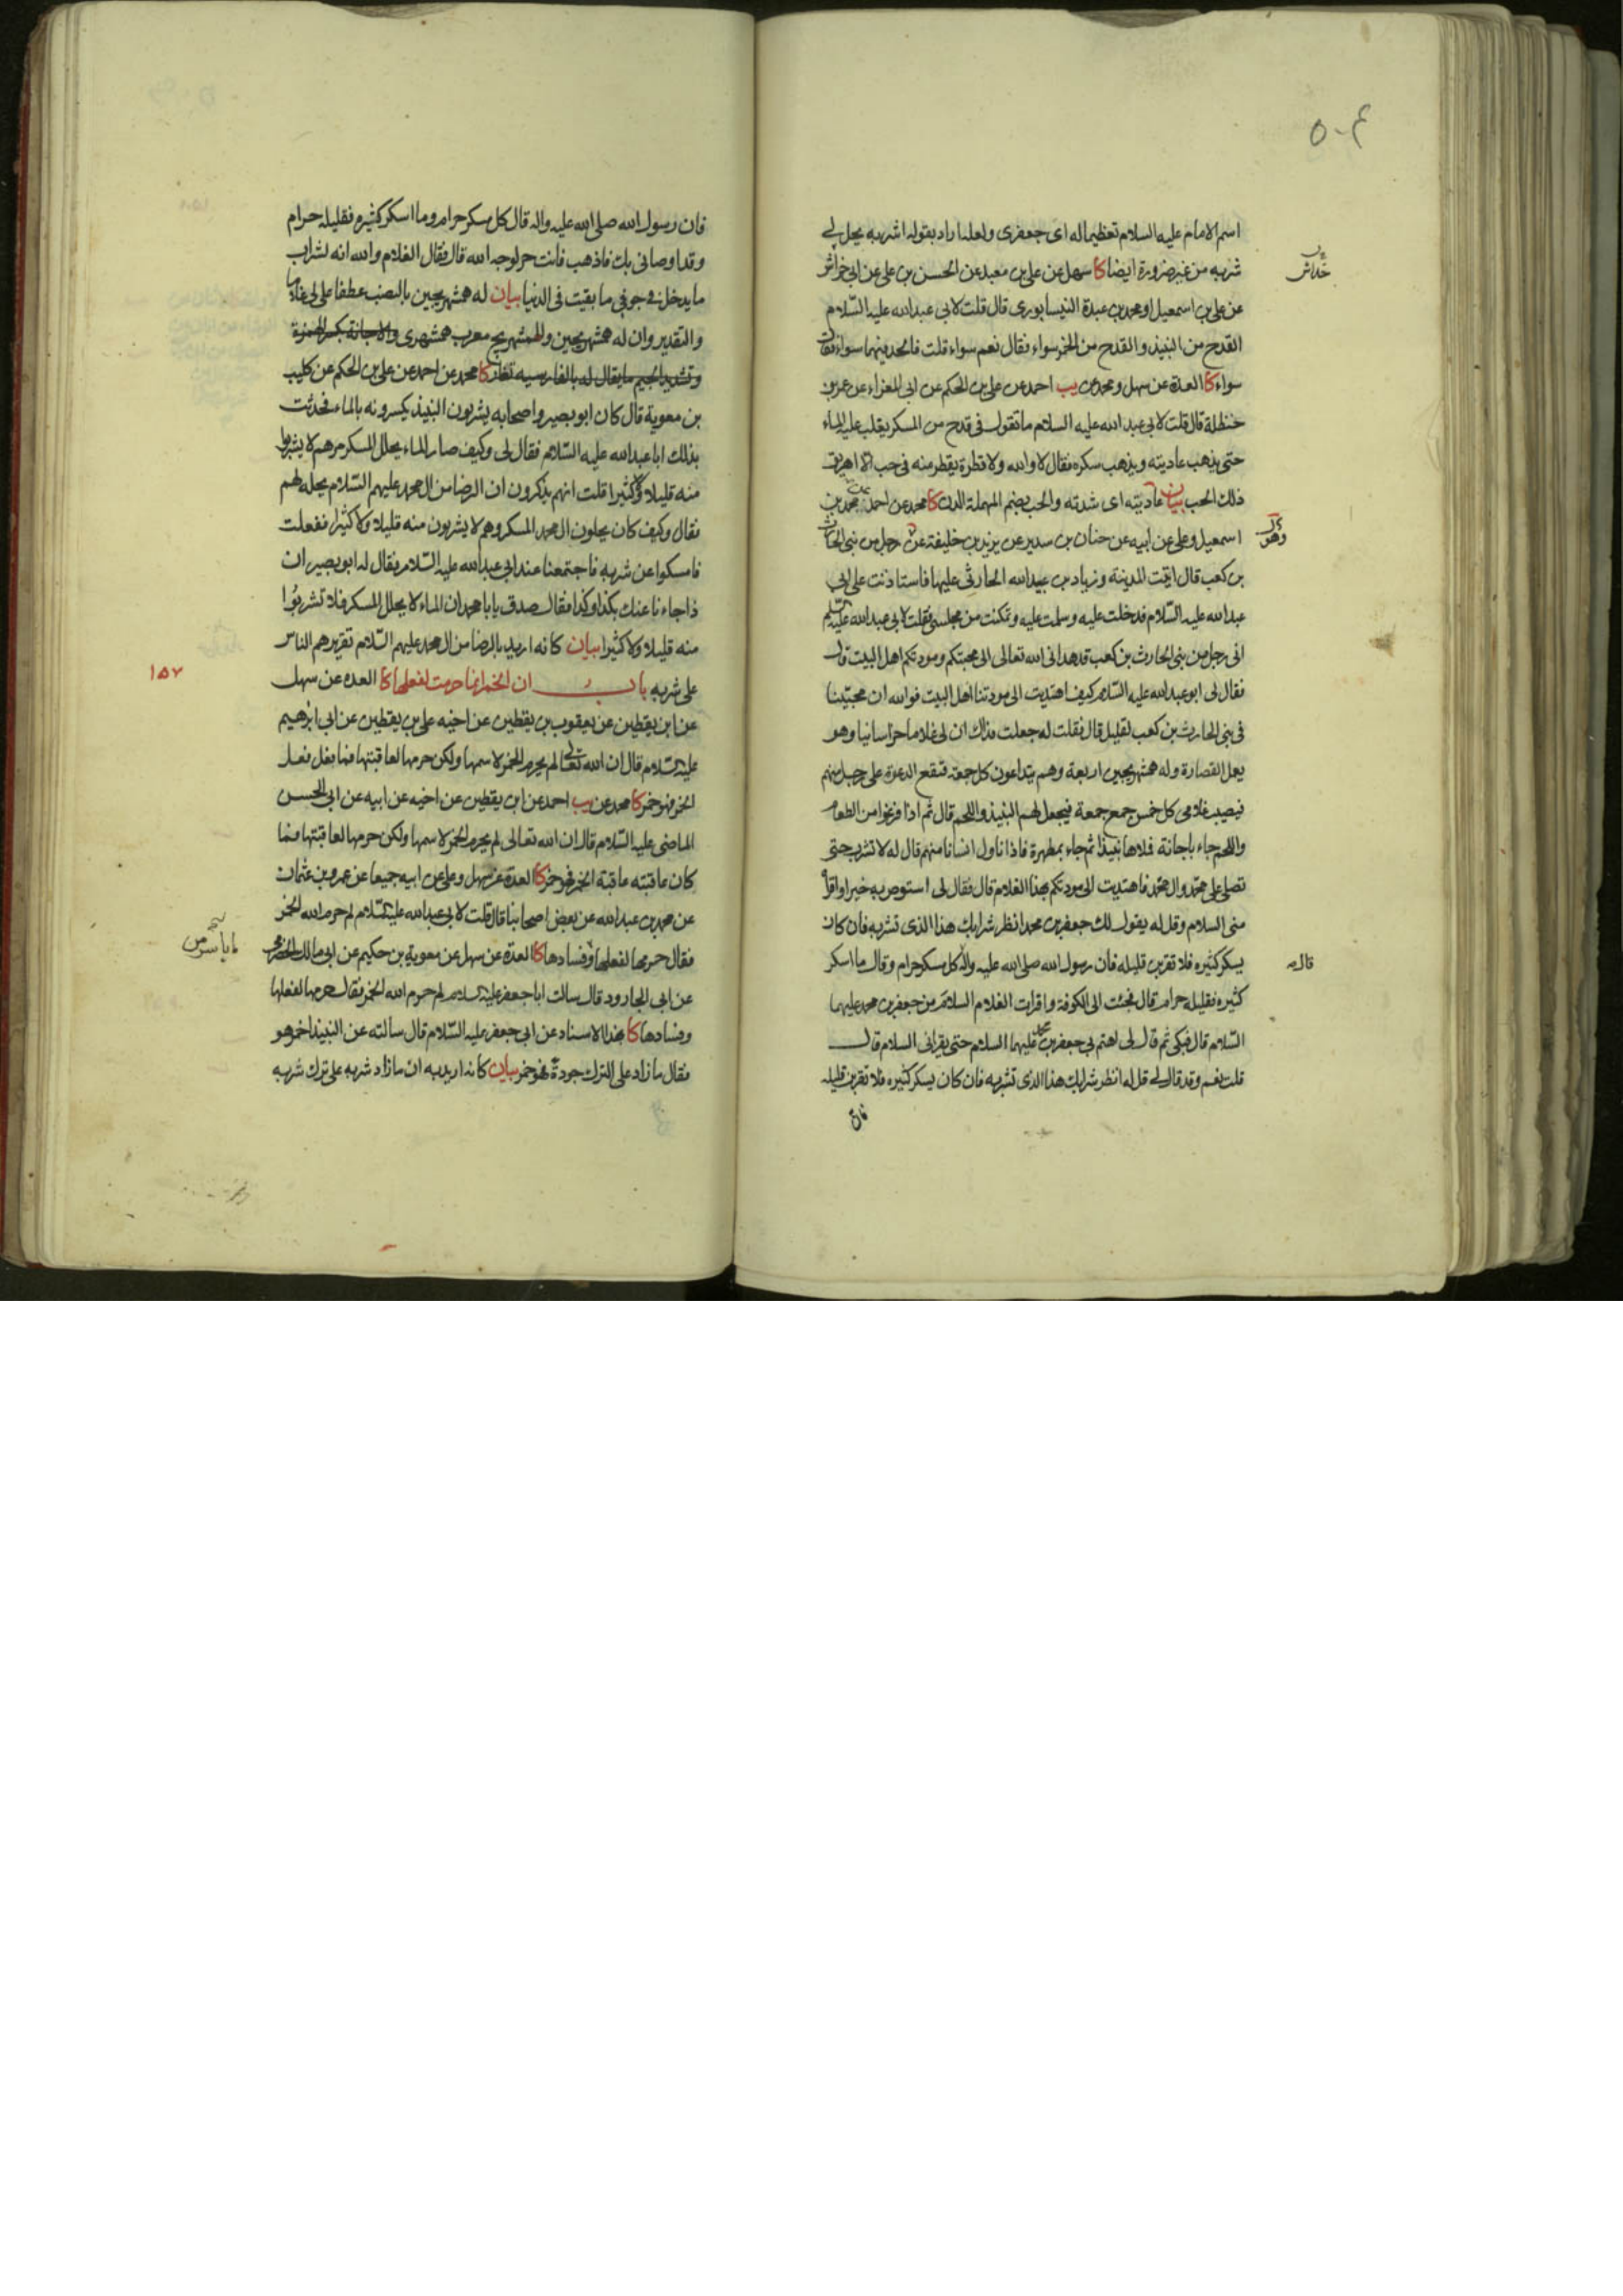 ٥٠٤
اسم الامام عليه السلام تعظيما له اى جعفرى ولعله اراد بقوله اشربه يحل لى
شربه من غير ضرورة ايضا كا سهل عن على بن معبد عن الحسن بن على عن ابى خراش
خداش
عن على بن اسمعيل او محمد بن عبدة النيسابورى قال قلت لابى عبد الله عليه السلام
القدح من النبيذ والقدح من الخمر سواء فقال نعم سواء قلت فالحد فيهما سواء فقال
سواء كا العدة عن سهل ومحمد عن يب احمد عن على بن الحكم عن ابى المغراء عن عمر بن
حنظلة قال قلت لابى عبد الله عليه السلام ما تقول فى قدح من المسكر يغلب عليه الماء
حتى يذهب عاديته ويذهب سكره فقال لا والله ولا قطرة يقطر منه فى حب الا اهريق
ذلك الحب بيان عاديته اى شدته والحب بضم المهملة الدن كا محمد عن احمد عن محمد بن
اسمعيل وعلى عن ابيه عن حنان بن سدير عن يزيد بن خليفة عن رجل من بنى الحارث
وهو
بن كعب قال اتيت المدينة وزياد بن عبيد الله الحارثى عليها فاستاذنت على ابى
عبد الله عليه السلام فدخلت عليه وسلمت عليه وتمكنت من مجلسى فقلت لابى عبد الله عليه السلم
انى رجل من بنى الحارث بن كعب قد هدانى الله تعالى الى محبتكم ومودتكم اهل البيت قال
فقال لى ابو عبد الله عليه السلام كيف اهتديت الى مودتنا اهل البيت فوالله ان محبتنا
فى بنى الحارث بن كعب لقليل قال فقلت له جعلت فداك ان لى غلاما خراسانيا وهو
يعمل القصارة وله همشهريجين اربعة وهم يتداعون كل جمعة فتقع الدعوة على رجل منهم
فيصيب غلامى كل خمس جمع جمعة فيجعل لهم النبيذ واللحم قال ثم اذا فرغوا من الطعام
واللحم جاء باجانة فملاها نبيذا ثم جاء بمطهرة فاذا ناول انسانا منهم قال له لا تشرب حتى
تصلى على محمد وال محمد فاهتديت الى مودتكم بهذا الغلام قال فقال لى استوص به خيرا واقراه
منى السلام وقل له يقول لك جعفر بن محمد انظر شرابك هذا الذى تشربه فان كان
يسكر كثيره فلا تقربن قليله فان رسول الله صلى الله عليه واله كل مسكر حرام وقال ما اسكر
قال
كثيره فقليله حرام قال فجئت الى الكوفة واقرات الغلام السلام من جعفر بن محمد عليهما
السلام قال فبكى ثم قال لى اهتم بى جعفر بن محمد عليهما السلام حتى يقرانى السلام قال
قلت نعم وقد قال لى قل له انظر شرابك هذا الذى تشربه فان كان يسكر كثيره فلا تقربن قليله
فان
فان رسول الله صلى الله عليه واله قال كل مسكر حرام وما اسكر كثيره فقليله حرام
وقد اوصانى بك فاذهب فانت حر لوجه الله قال فقال الغلام والله انه لشراب
ما يدخل فى جوفى ما بقيت فى الدنيا بيان له همشهريجين بالنصب عطفا على لى غلاما
والتقدير وان له همشهريجين والهمشهريج معرب همشهرى والاجانة بكسر الهمزة
وتشديد الجيم ما يقال له بالفارسيه تغار كا محمد عن احمد عن على بن الحكم عن كليب
بن معوية قال كان ابو بصير واصحابه يشربون النبيذ يكسرونه بالماء فحدثت
بذلك ابا عبد الله عليه السلام فقال لى وكيف صار الماء يحلل المسكر مرهم لا يشربوا
منه قليلا ولا كثيرا قلت انهم يذكرون ان الرضا من ال محمد عليهم السلام يحله لهم
فقال وكيف كان يحلون ال محمد المسكر وهم لا يشربون منه قليلا ولا كثيرا ففعلت
فامسكوا عن شربه فاجتمعنا عند ابى عبد الله عليه السلام فقال له ابو بصير ان
ذا جاءنا عنك بكذا وكذا فقال صدق يا با محمد ان الماء لا يحلل المسكر فلا تشربوا
منه قليلا ولا كثيرا بيان كانه اريد بالرضا من ال محمد عليهم السلام تقريرهم الناس
على شربه باب ان الخمر انما حرمت لفعلها كا العدة عن سهل
١٥٧
عن ابن يقطين عن يعقوب بن يقطين عن اخيه على بن يقطين عن ابى ابرهيم
عليه السلام قال ان الله تعالى لم يحرم الخمر لاسمها ولكن حرمها لعاقبتها فما فعل فعل
الخمر فهو خمر كا محمد عن يب احمد عن ابن يقطين عن اخيه عن ابيه عن ابى الحسن
الماضى عليه السلام قال ان الله تعالى لم يحرم الخمر لاسمها ولكن حرمها لعاقبتها فما
كان عاقبته عاقبة الخمر فهو خمر كا العدة عن سهل وعلى عن ابيه جميعا عن عمرو بن عثمان
عن محمد بن عبد الله عن بعض اصحابنا قال قلت لابى عبد الله عليه السلام لم حرم الله الخمر
فقال حرمها لفعلها وفسادها كا العدة عن سهل عن معوية بن حكيم عن ابى مالك الحضرمى
عن ابى الجارود قال سالت ابا جعفر عليه السلام لم حرم الله الخمر فقال حرمها لفعلها
وفسادها كا بهذا الاسناد عن ابى جعفر عليه السلام قال سالته عن النبيذ اخمر هو
فقال ما زاد على الترك جودة فهو خمر بيان كانه اريد به ان ما زاد شربه على ترك شربه